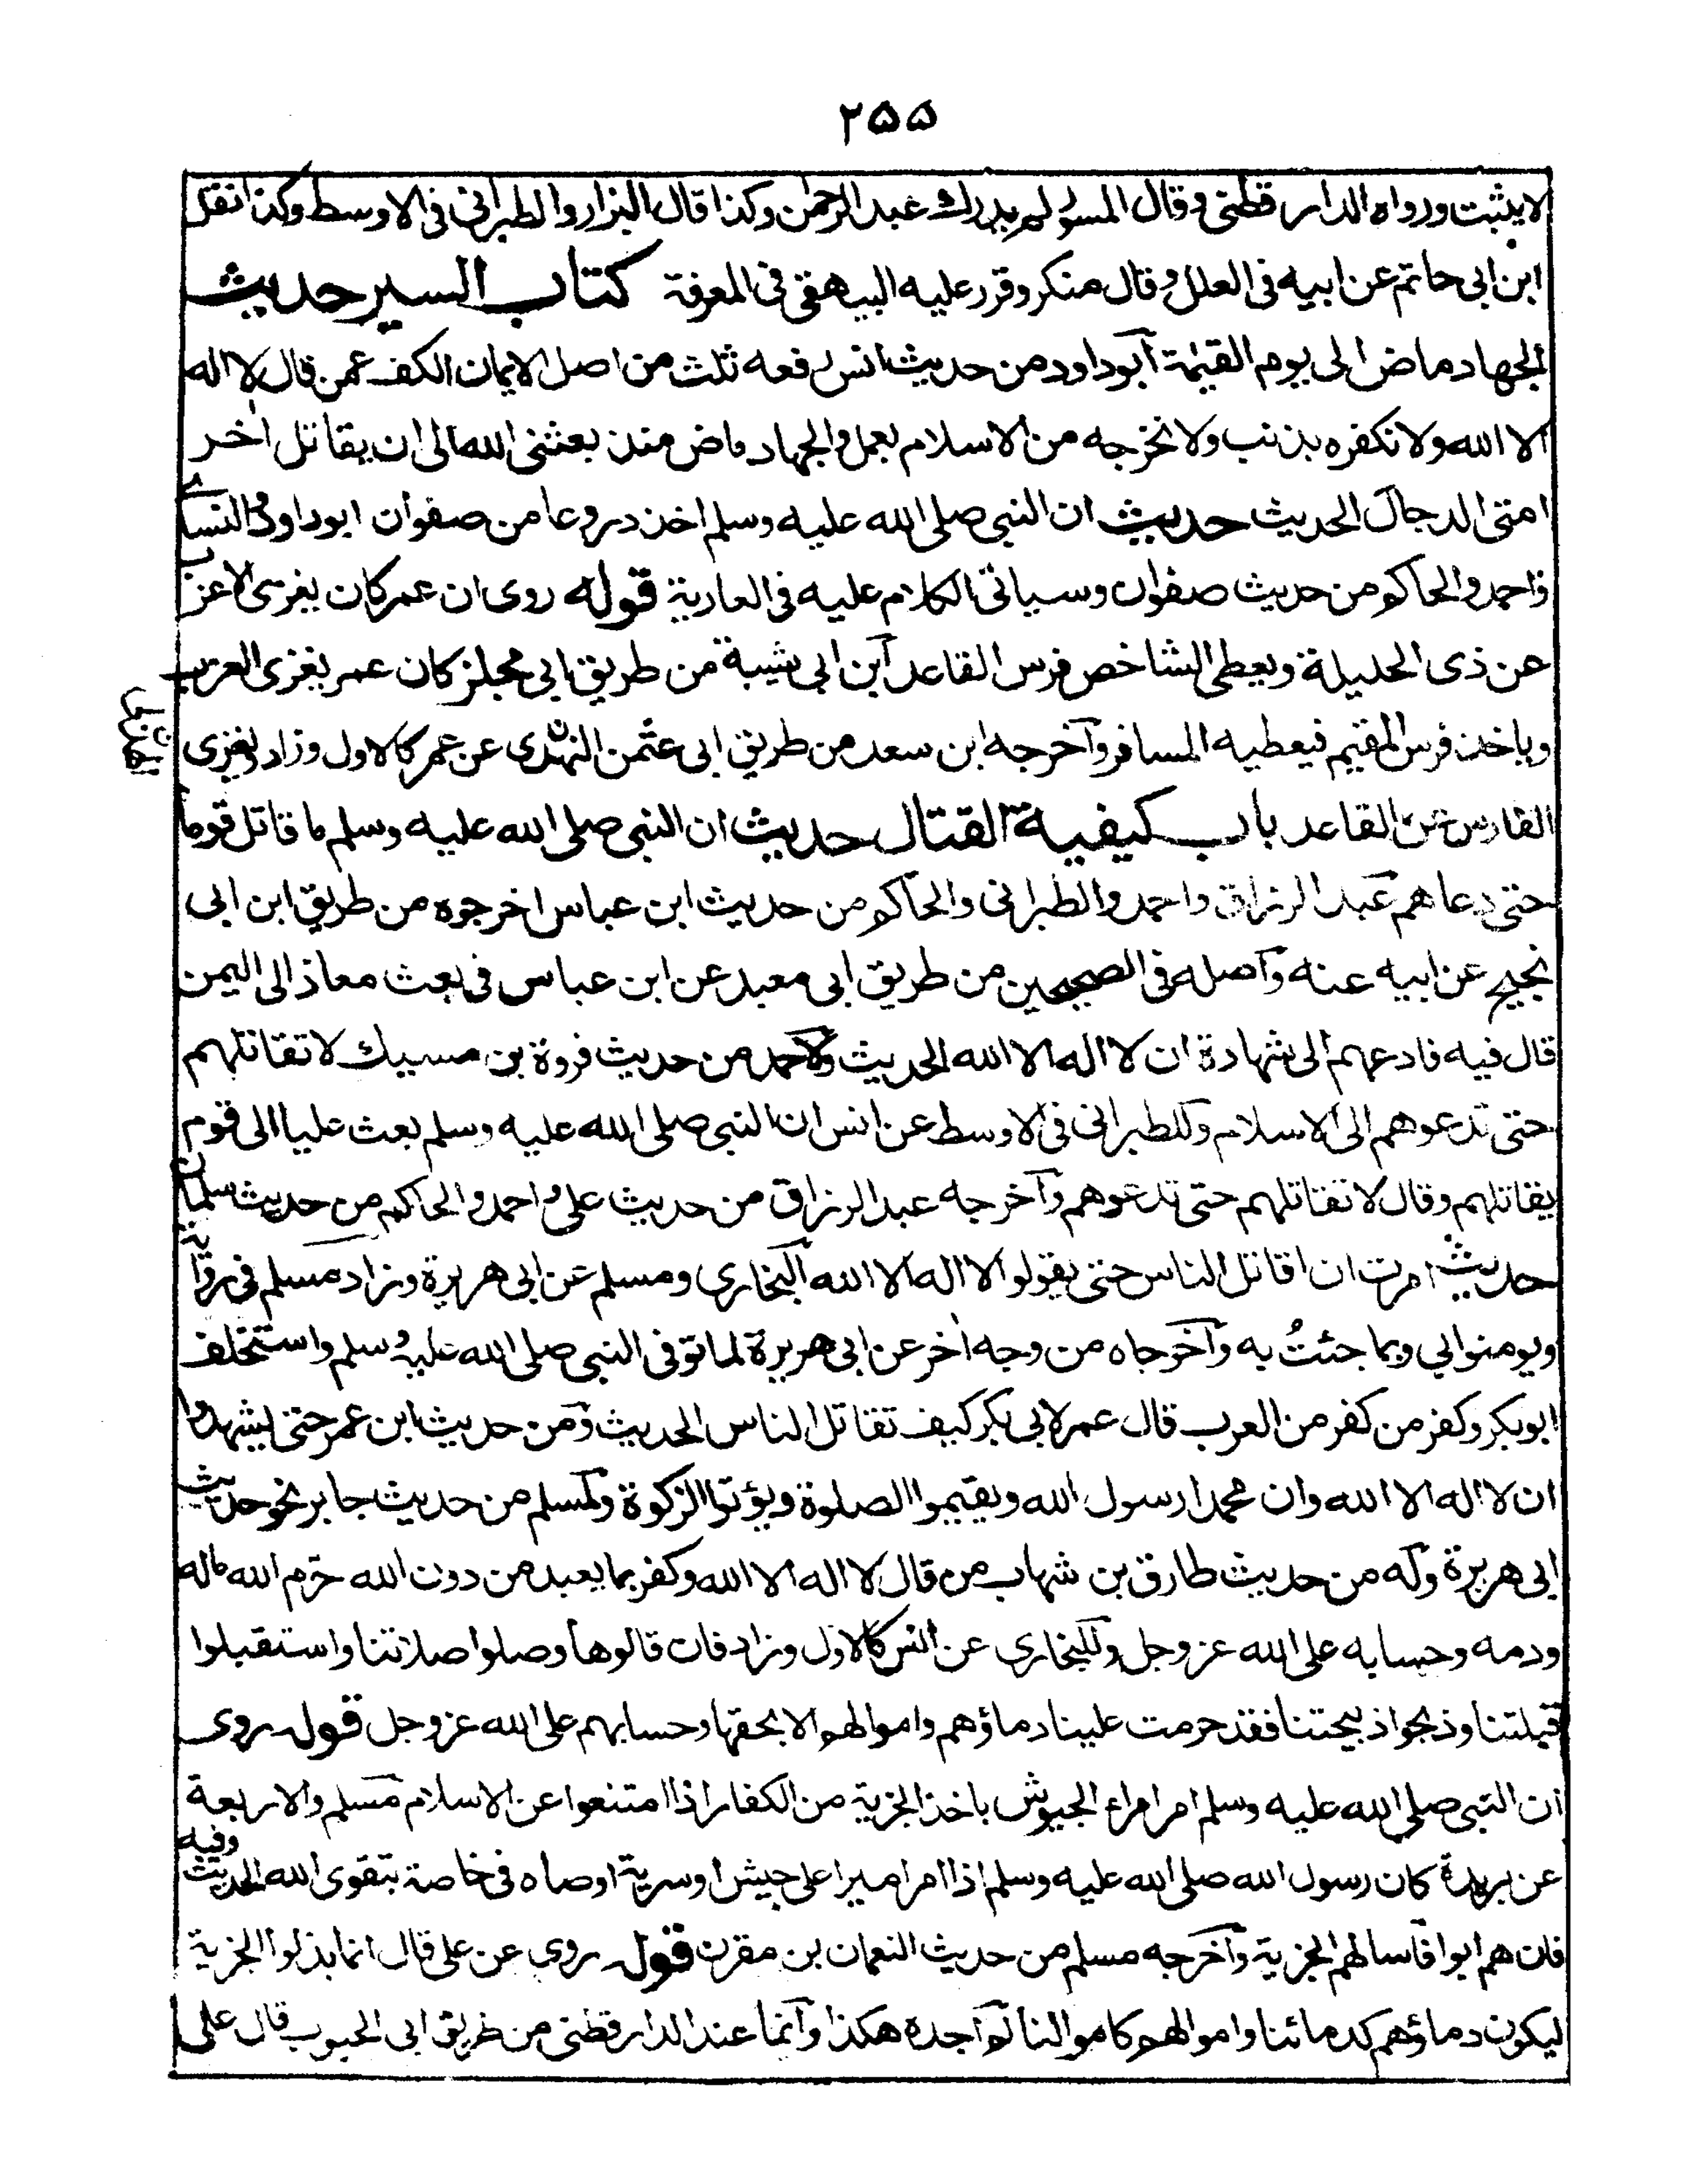 ٢٥٥
لا يثبت ورواه الدارقطنى وقال المسور لم يدرك عبد الرحمن وكذا قال البزار والطبرانى فى الاوسط وكذا نقل
ابن ابى حاتم عن ابيه فى العلل وقال منكر وقرر عليه البيهقى فى المعرفة كتاب السير حديث
الجهاد ماض الى يوم القيٰمة ابوداود من حديث انس رفعه ثلث من اصل الايمان الكف عمن قال لا اله
الا الله ولا نكفره بذنب ولا نخرجه من الاسلام بعمل والجهاد ماض منذ بعثنى الله الى ان يقاتل اٰخر
امتى الدجال الحديث حديث ان النبى صلى الله عليه وسلم اخذ دروعا من صفوان ابوداود والنسائے
واحمد والحاكم من حديث صفوان وسياتى الكلام عليه فى العارية قوله روى ان عمر كان يغزى الاعزب
عن ذى الحليلة ويعطى الشاخص فرس القاعد ابن ابى شيبة من طريق ابى مجلز كان عمر يغزى العزب
وياخذ فرس المقيم فيعطيه المسافر واخرجه ابن سعد من طريق ابى عثمن النهدى عن عمر كالاول وزاد ويغزى
الفارس عن القاعد باب كيفية القتال حديث ان النبى صلى الله عليه وسلم ما قاتل قوما
حتى دعاهم عبد الرزاق واحمد والطبرانى والحاكم من حديث ابن عباس اخرجوه من طريق ابن ابى
نجيح عن ابيه عنه واصله فى الصحيحين من طريق ابى معبد عن ابن عباس فى بعث معاذ الى اليمن
قال فيه فادعهم الى شهادة ان لا اله الا الله الحديث ولاحمد من حديث فروة بن مسيك لا تقاتلهم
حتى تدعوهم الى الاسلام وللطبرانى فى الاوسط عن انس ان النبى صلى الله عليه وسلم بعث عليا الى قوم
يقاتلهم وقال لا تقاتلهم حتى تدعوهم واخرجه عبد الرزاق من حديث على واحمد والحاكم من حديث سلمان
حديث امرت ان اقاتل الناس حتى يقولوا لا اله الا الله البخارى ومسلم عن ابى هريرة وزاد مسلم فى رواية
ويومنوا بي وبما جئتُ به واخرجاه من وجه اٰخر عن ابى هريرة لما توفى النبى صلى الله عليه وسلم واستخلف
ابوبكر وكفر من كفر من العرب قال عمر لابى بكر كيف تقاتل الناس الحديث ومن حديث ابن عمر حتى يشهدوا
ان لا اله الا الله وان محمدا رسول الله ويقيموا الصلوة ويؤتوا الزكوة ولمسلم من حديث جابر نحو حديث
ابى هريرة وله من حديث طارق بن شهاب من قال لا اله الا الله وكفر بما يعبد من دون الله حرّم الله ماله
ودمه وحسابه على الله عز وجل وللبخارى عن انس كالاول وزاد فان قالوها وصلوا صلاتنا واستقبلوا
قبلتنا وذبحوا ذبيحتنا فقد حرمت علينا دماؤهم واموالهم الا بحقها وحسابهم على الله عز وجل قوله روى
ان النبى صلى الله عليه وسلم امر امراء الجيوش باخذ الجزية من الكفار اذا امتنعوا عن الاسلام مسلم والاربعة
عن بريدة كان رسول الله صلى الله عليه وسلم اذا امر اميرا على جيش او سرية اوصاه فى خاصة بتقوى الله الحديث وفيه
فان هم ابوا فاسالهم الجزية واخرجه مسلم من حديث النعمان بن مقرن قوله روى عن على قال انما بذلوا الجزية
ليكون دماؤهم كدمائنا واموالهم كاموالنا لم اجده هكذا وانما عند الدارقطنى من طريق ابى الجنوب قال على